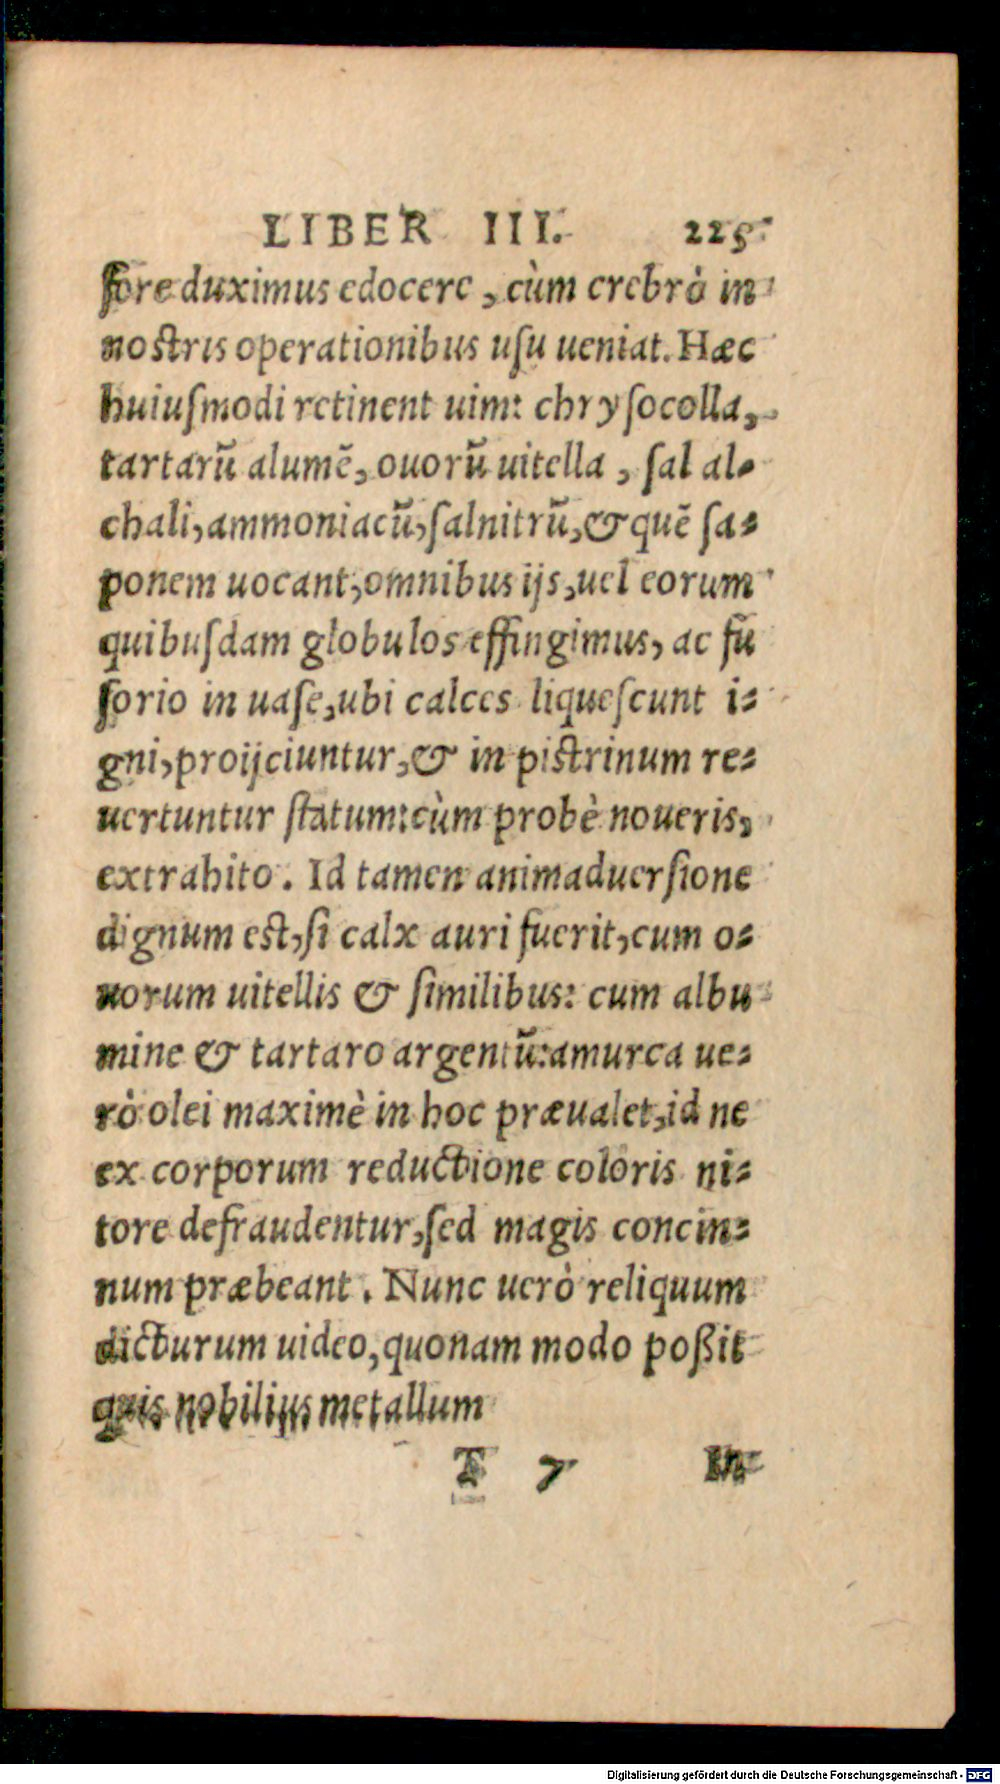 LIBER III. 225
fore duximus edocere, cùm crebrò in
nostris operationibus usu ueniat. Hæc
huiuſmodi retinent uim: chryſocolla,
tartarū alumē, ouorū uitella, ſal al-
chali, ammoniacū, ſalnitrū, & quē ſa-
ponem uocant, omnibus ijs, uel eorum
quibuſdam globulos effingimus, ac fū
ſorio in uaſe, ubi calces liqueſcunt i-
gni, proijciuntur, & in pistrinum re-
uertuntur ſtatum: cùm probè noueris,
extrahito. Id tamen animaduerſione
dignum est, ſi calx auri fuerit, cum o-
uorum uitellis & ſimilibus: cum albu
mine & tartaro argentū: amurca ue-
rò olei maximè in hoc præualet, id ne
ex corporum reductione coloris ni-
tore defraudentur, ſed magis concin-
num præbeant. Nunc uerò reliquum
dicturum uideo, quonam modo poßit
quis nobilius metallum
T 7 in
Digitalisierung gefördert durch die Deutsche Forschungsgemeinschaft - DFG